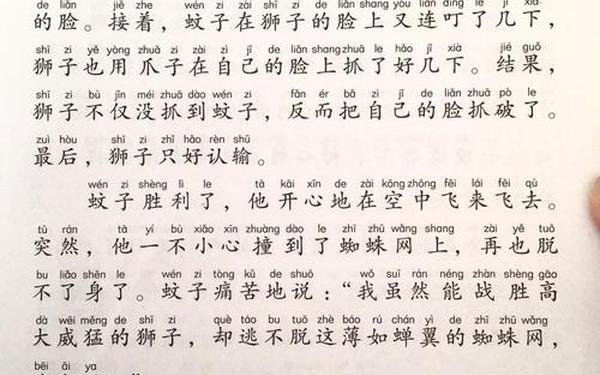 de liǎn jiē zhe wén zi zài shī zi de liǎn shang yòu lián dīng le jǐ xià
的脸。接着，蚊子在狮子的脸上又连叮了几下，
shī zi yě yòng zhuǎ zi zài zì jǐ de liǎn shang zhuā le hǎo jǐ xià jié guǒ
狮子也用爪子在自己的脸上抓了好几下。结果，
shī zi bù jǐn méi zhuā dào wén zi fǎn ér bǎ zì jǐ de liǎn zhuā pò le
狮子不仅没抓到蚊子，反而把自己的脸抓破了。
zuì hòu shī zi zhǐ hǎo rèn shū
最后，狮子只好认输。
wén zi shèng lì le tā kāi xīn de zài kōng zhōng fēi lái fēi qù
蚊子胜利了，他开心地在空中飞来飞去。
tū rán tā yí bù xiǎo xīn zhuàng dào le zhī zhū wǎng shang zài yě tuō
突然，他一不小心撞到了蜘蛛网上，再也脱
bu liǎo shēn le wén zi tòng kǔ de shuō wǒ suī rán néng zhàn shèng gāo
不了身了。蚊子痛苦地说：“我虽然能战胜高
dà wēi měng de shī zi què táo bu tuō zhè báo rú chán yì de zhī zhū wǎng
大威猛的狮子，却逃不脱这薄如蝉翼的蜘蛛网，
bēi āi ya